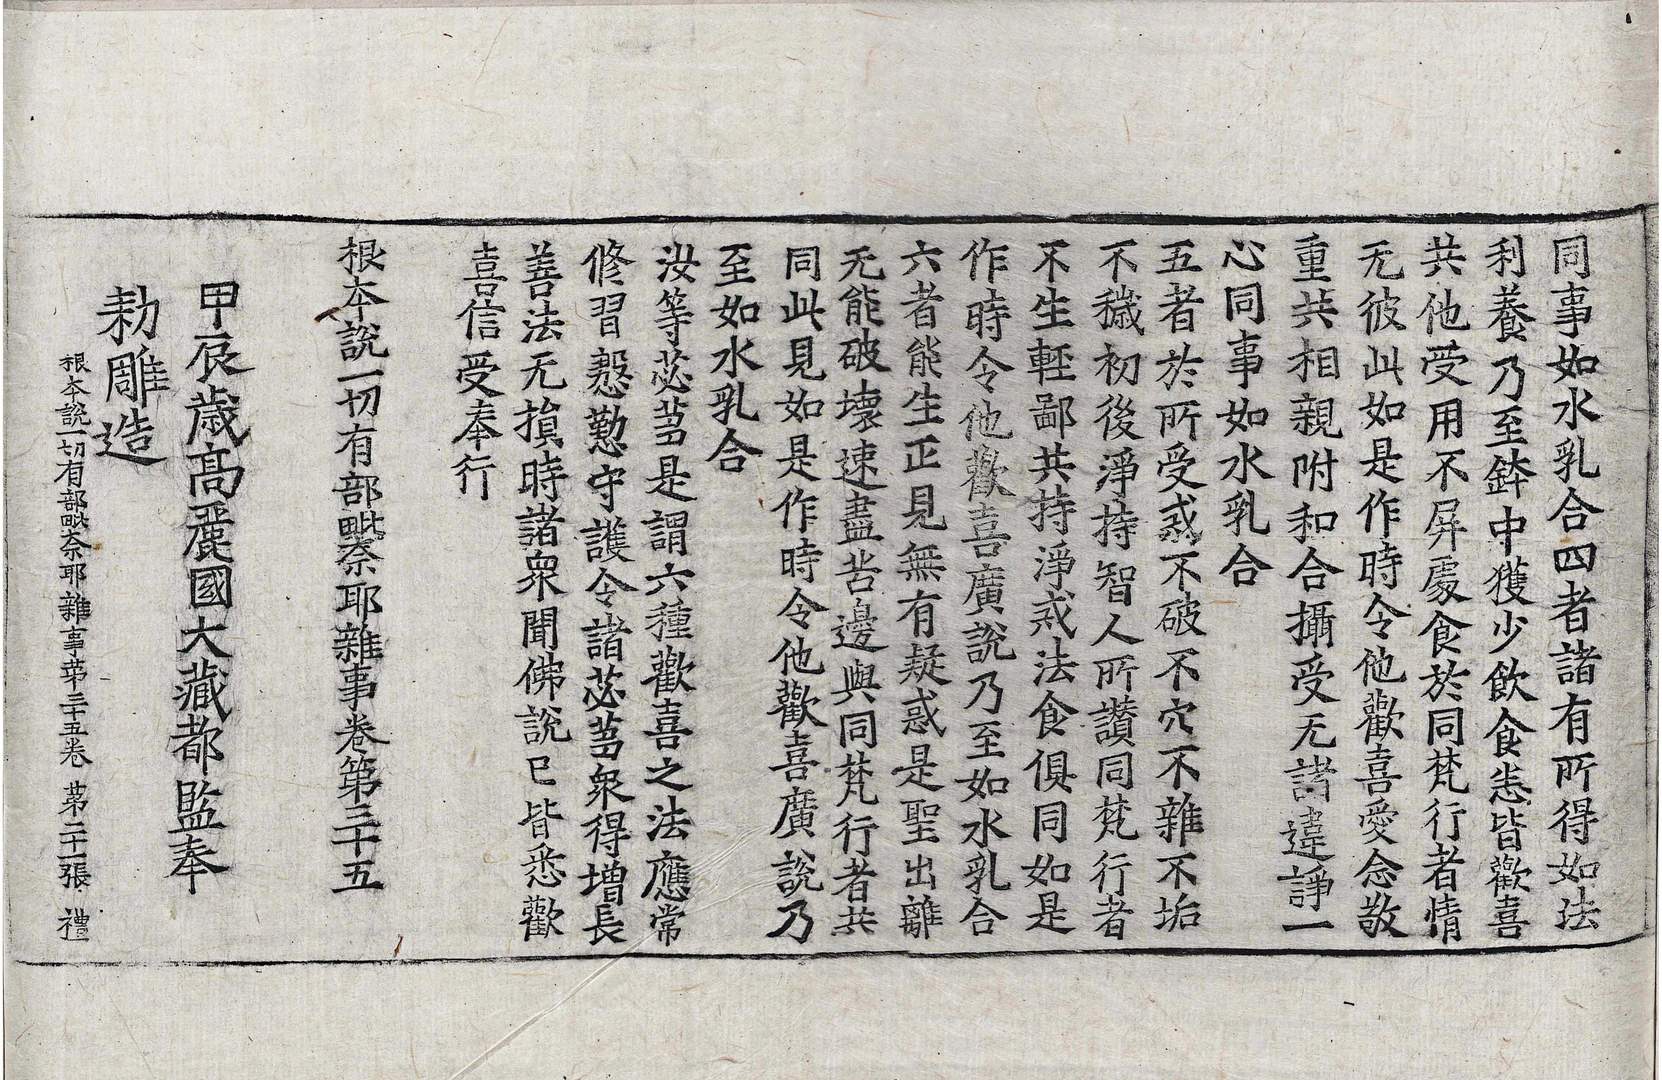 同事如水乳合四者諸有所得如法
利養乃至鉢中獲少飲食悉皆歡喜
共他受用不屏處食於同梵行者情
无彼此如是作時令他歡喜愛念敬
重共相親附和合攝受无諸違諍一
心同事如水乳合
五者於所受戒不破不穴不雜不垢
不穢初後淨持智人所讚同梵行者
不生輕鄙共持淨戒法食俱同如是
作時令他歡喜廣說乃至如水乳合
六者能生正見無有疑惑是聖出離
无能破壞速盡苦邊與同梵行者共
同此見如是作時令他歡喜廣說乃
至如水乳合
汝等苾芻是謂六種歡喜之法應常
修習慇懃守護令諸苾芻衆得增長
善法无損時諸衆聞佛說已皆悉歡
喜信受奉行
根本說一切有部毗奈耶雜事卷第三十五
甲辰歲高麗國大藏都監奉
勑雕造
根本說一切有部毗奈耶雜事苐三十五卷 苐二十一張 禮